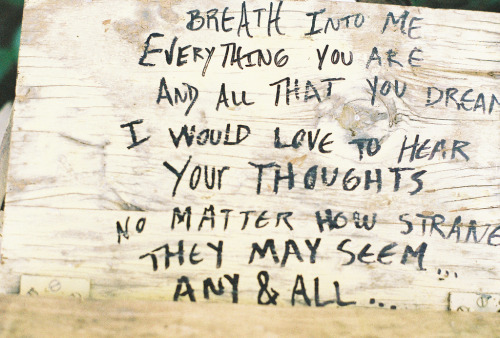 BREATH INTO ME
EVERYTHING YOU ARE
AND ALL THAT YOU DREAM
I WOULD LOVE TO HEAR
YOUr THOUGHTS
NO MATTER HOW STRANE
THEY MAY SEEM...
ANY & ALL...